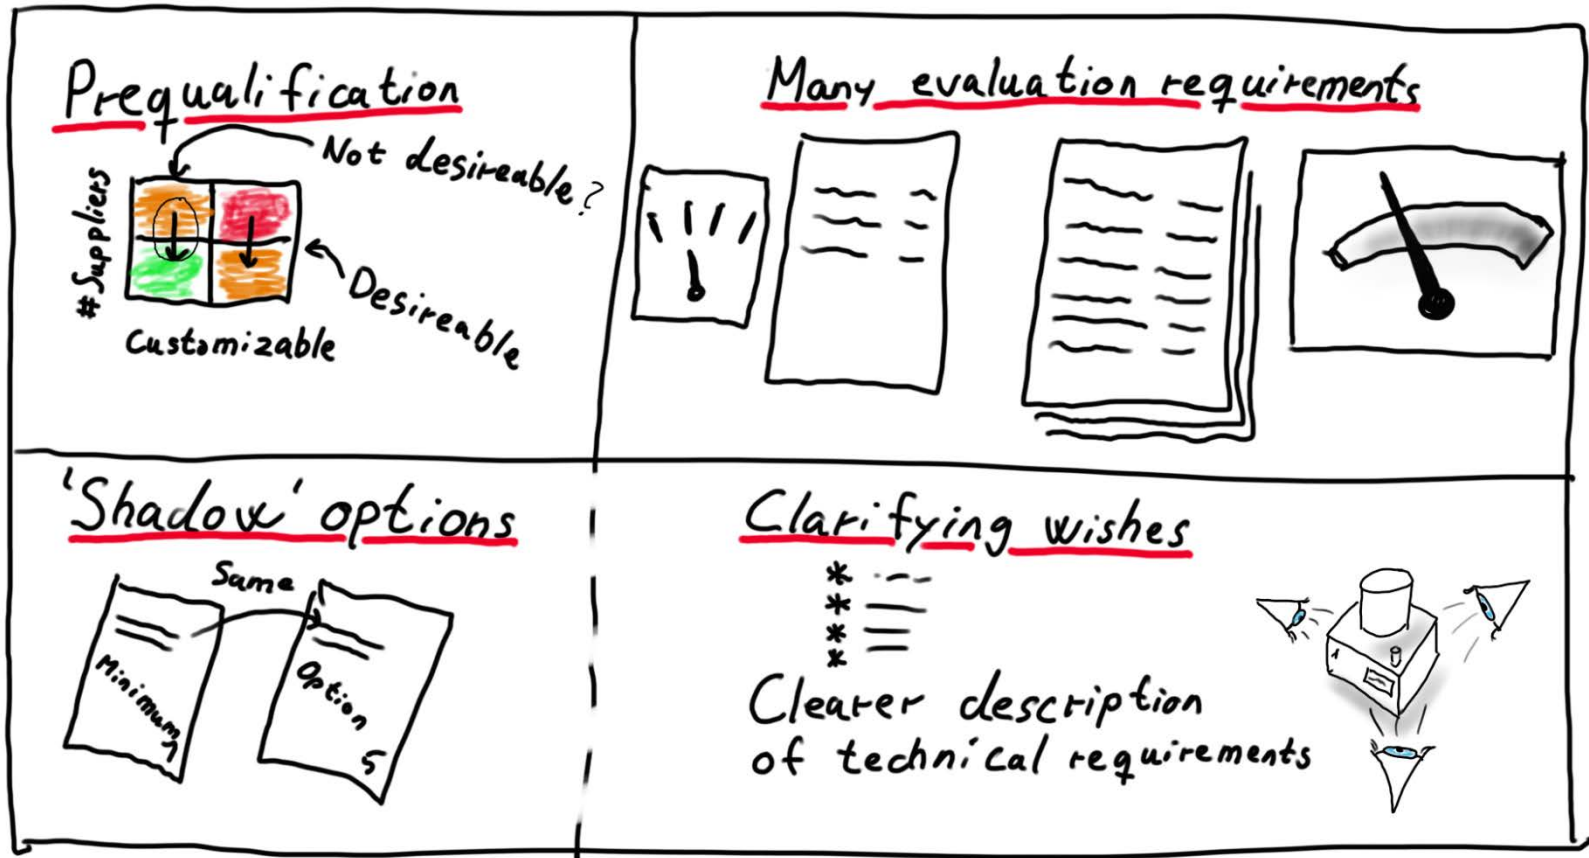 Prequalification
Not desireable?
#Suppliers
Desireable
Customizable
Many evaluation requirements
'Shadow' options
Same
Minimum
1
Option
5
Clarifying wishes
*
*
*
*
Clearer description
of technical requirements